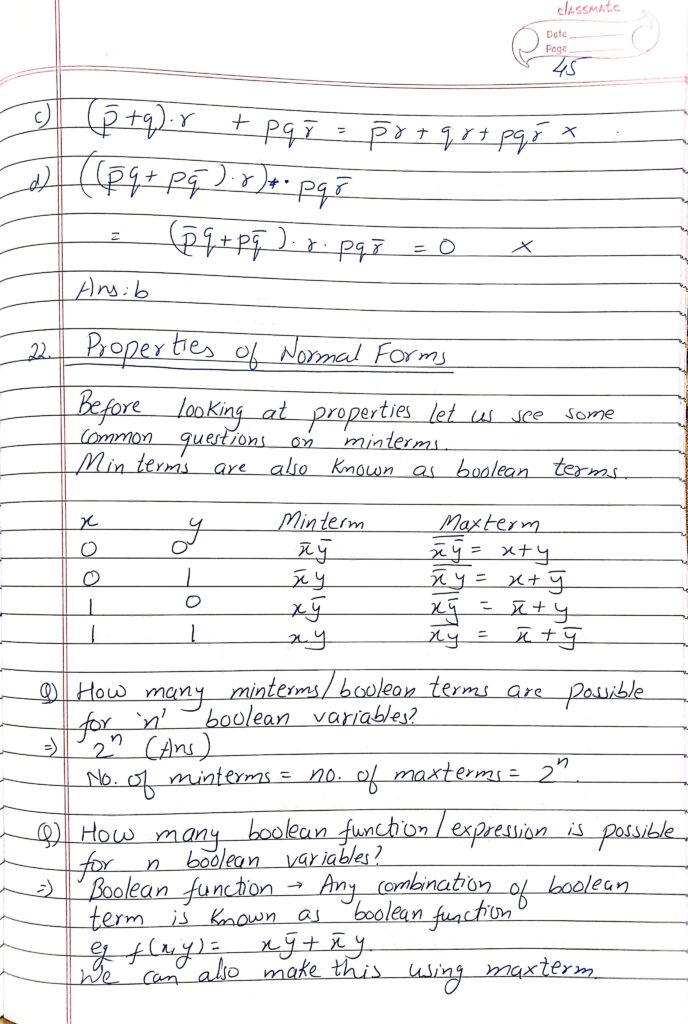 classmate
Date
Page
45
c) (p̄+q)·r + pqr̄ = p̄r + qr + pqr̄ ×
d) ((p̄q + pq̄)·r)·pqr̄
= (p̄q+pq̄)·r·pqr̄ = 0 ×
Ans: b
22. Properties of Normal Forms
Before looking at properties let us see some
common questions on minterms.
Min terms are also known as boolean terms.
x y Minterm Maxterm
0 0 x̄ȳ x̅̄y̅̄ = x+y
0 1 x̄y x̅̄y̅ = x+ȳ
1 0 xȳ x̅y̅̄ = x̄+y
1 1 xy x̅y̅ = x̄+ȳ
Q) How many minterms/boolean terms are possible
for 'n' boolean variables?
⇒ 2ⁿ (Ans)
No. of minterms = no. of maxterms = 2ⁿ.
Q) How many boolean function/expression is possible
for n boolean variables?
⇒ Boolean function → Any combination of boolean
term is known as boolean function
eg f(x,y) = xȳ + x̄y.
We can also make this using maxterm.